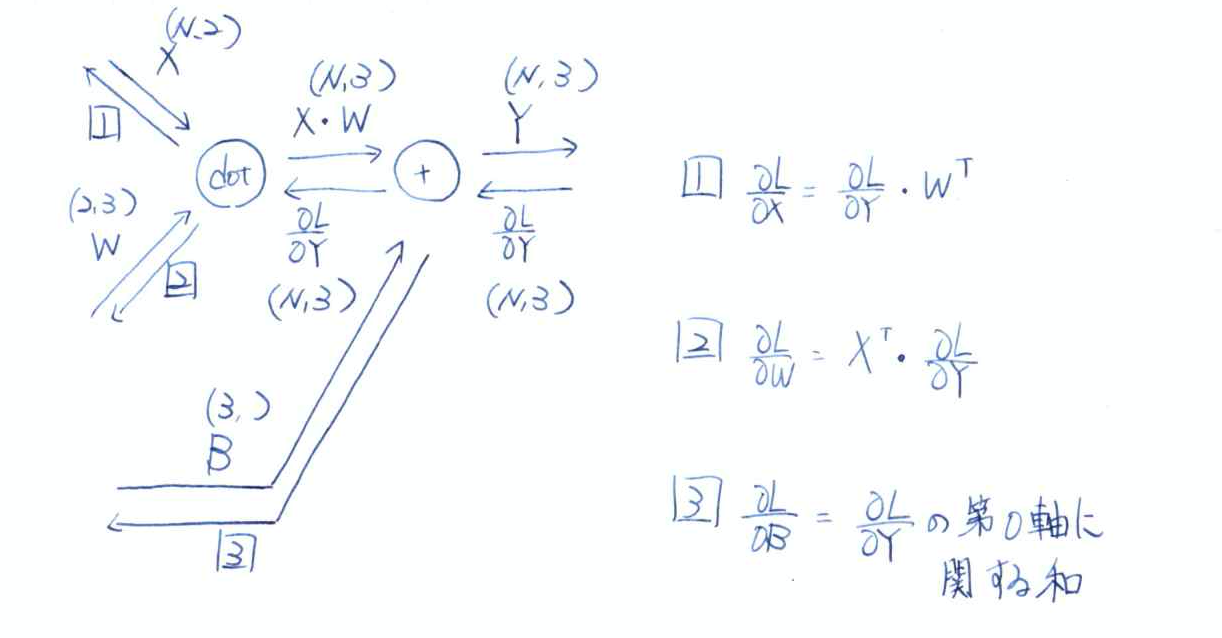 (N,2)
X
1
(2,3)
W
2
dot
(N,3)
X・W
∂L/∂Y
(N,3)
+
(N,3)
Y
∂L/∂Y
(N,3)
(3,)
B
3
1 ∂L/∂X = ∂L/∂Y・W^T
2 ∂L/∂W = X^T・∂L/∂Y
3 ∂L/∂B = ∂L/∂Yの第0軸に
関する和